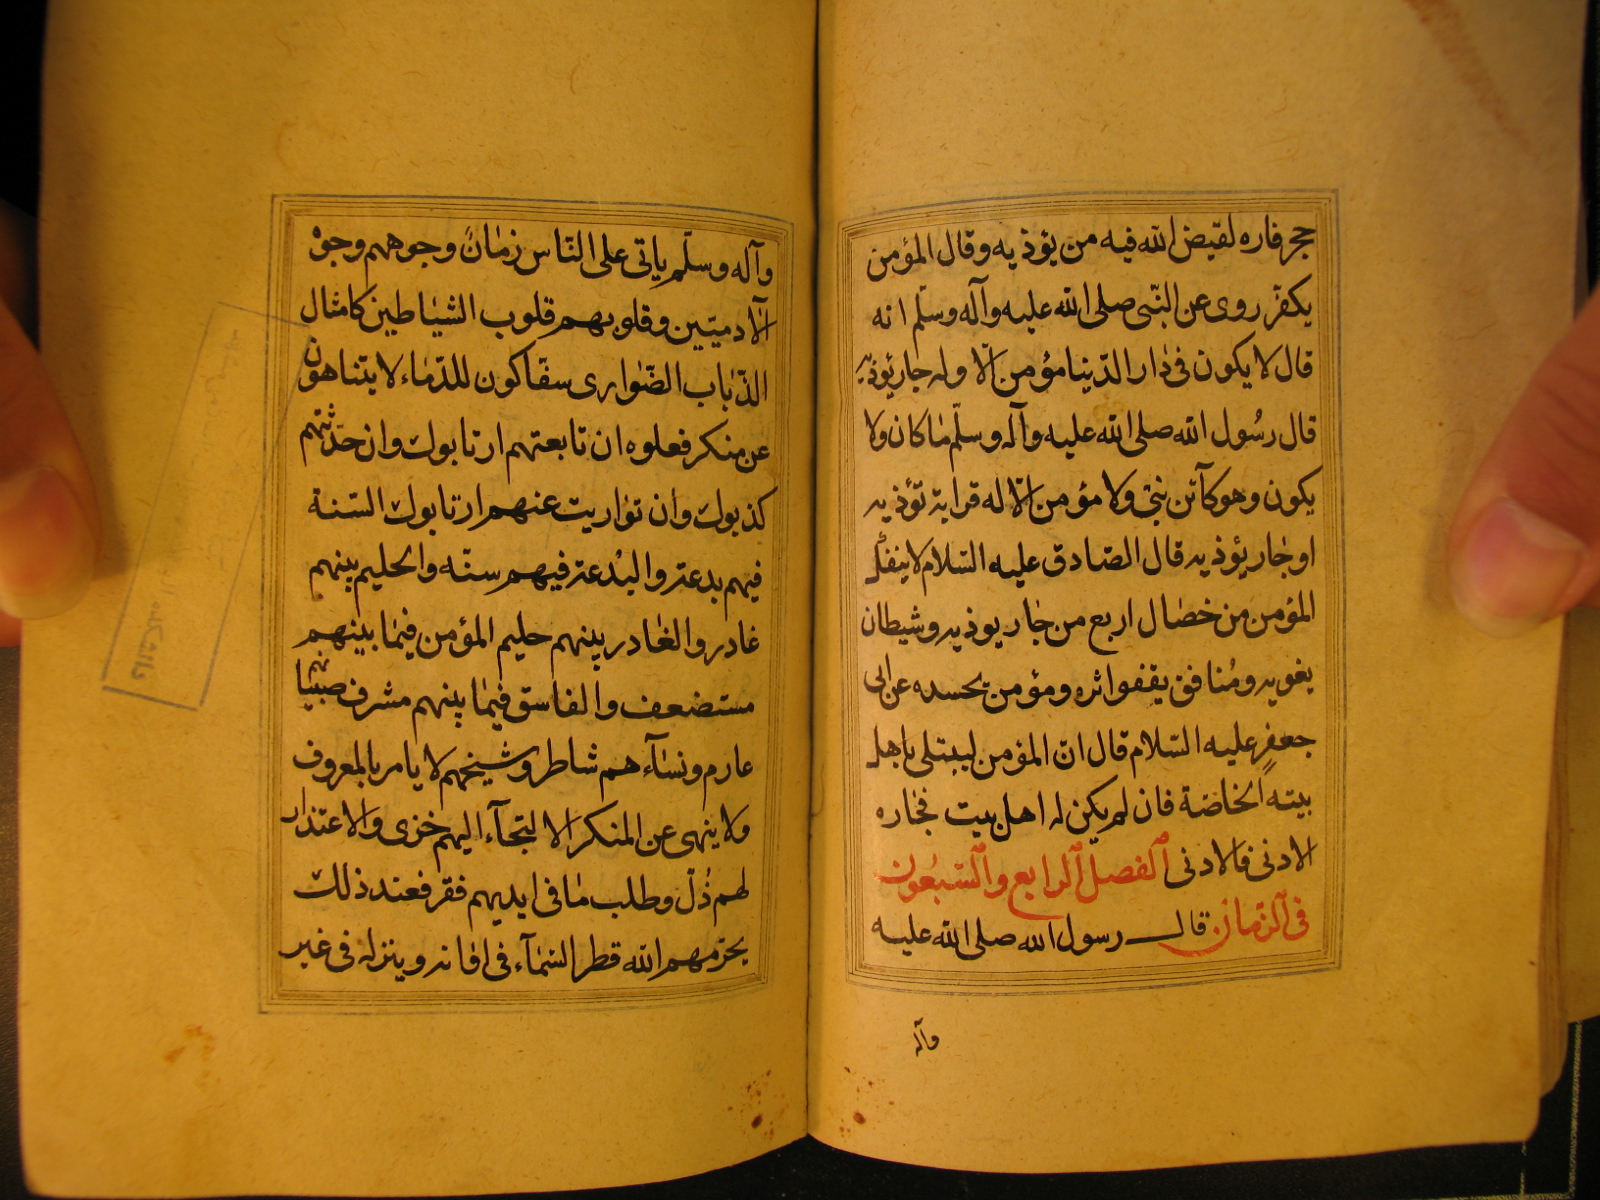 حجر فاره لقيض الله فيه من يؤذيه وقال المؤمن
يكفر روى عن النبى صلى الله عليه وآله وسلم انه
قال لا يكون فى دار الدنيا مؤمن الا وله جار يؤذيه
قال رسول الله صلى الله عليه وآله وسلم ما كان ولا
يكون وهو كآئن نبى ولا مؤمن الا له قرابة تؤذيه
او جار يؤذيه قال الصادق عليه السلام لا ينفك
المؤمن من خصال اربع من جار يوذيه وشيطان
يغويه ومنافق يقفوا اثره ومؤمن يحسده عن ابى
جعفر عليه السلام قال ان المؤمن ليبتلى باهل
بيته الخاصة فان لم يكن له اهل بيت فجاره
الادنى فالادنى الفصل الرابع والسبعون
فى الزمان قال رسول الله صلى الله عليه
وآله
وآله وسلم ياتى على الناس زمان وجوههم وجوه
الآدميين وقلوبهم قلوب الشياطين كامثال
الذباب الضوارى سفاكون للدماء لا يتناهون
عن منكر فعلوه ان تابعتهم ارتابوك وان حدثتهم
كذبوك وان تواريت عنهم ارتابوك السنة
فيهم بدعة والبدعة فيهم سنه والحليم بينهم
غادر والغادر بينهم حليم المؤمن فيما بينهم
مستضعف والفاسق فيما بينهم مشرف صبيانهم
عارم ونسآءهم شاطر وشيخهم لا يامر بالمعروف
ولا ينهى عن المنكر الالتجآء اليهم خزى والاعتذار
لهم ذل وطلب ما فى ايديهم فقر فعند ذلك
يحرمهم الله قطر السمآء فى اوانه وينزله فى غير